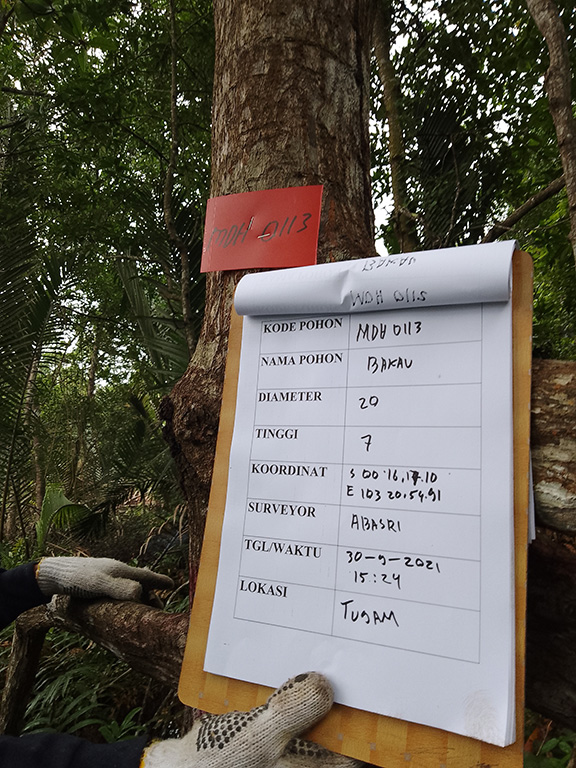 MDH 0113
BAKAU
MDH 0115
KODE POHON MDH 0113
NAMA POHON BAKAU
DIAMETER 20
TINGGI 7
KOORDINAT S 00.16.17.10
E 103 20.54.91
SURVEYOR ABASRI
TGL/WAKTU 30-9-2021
15:24
LOKASI TUGAM